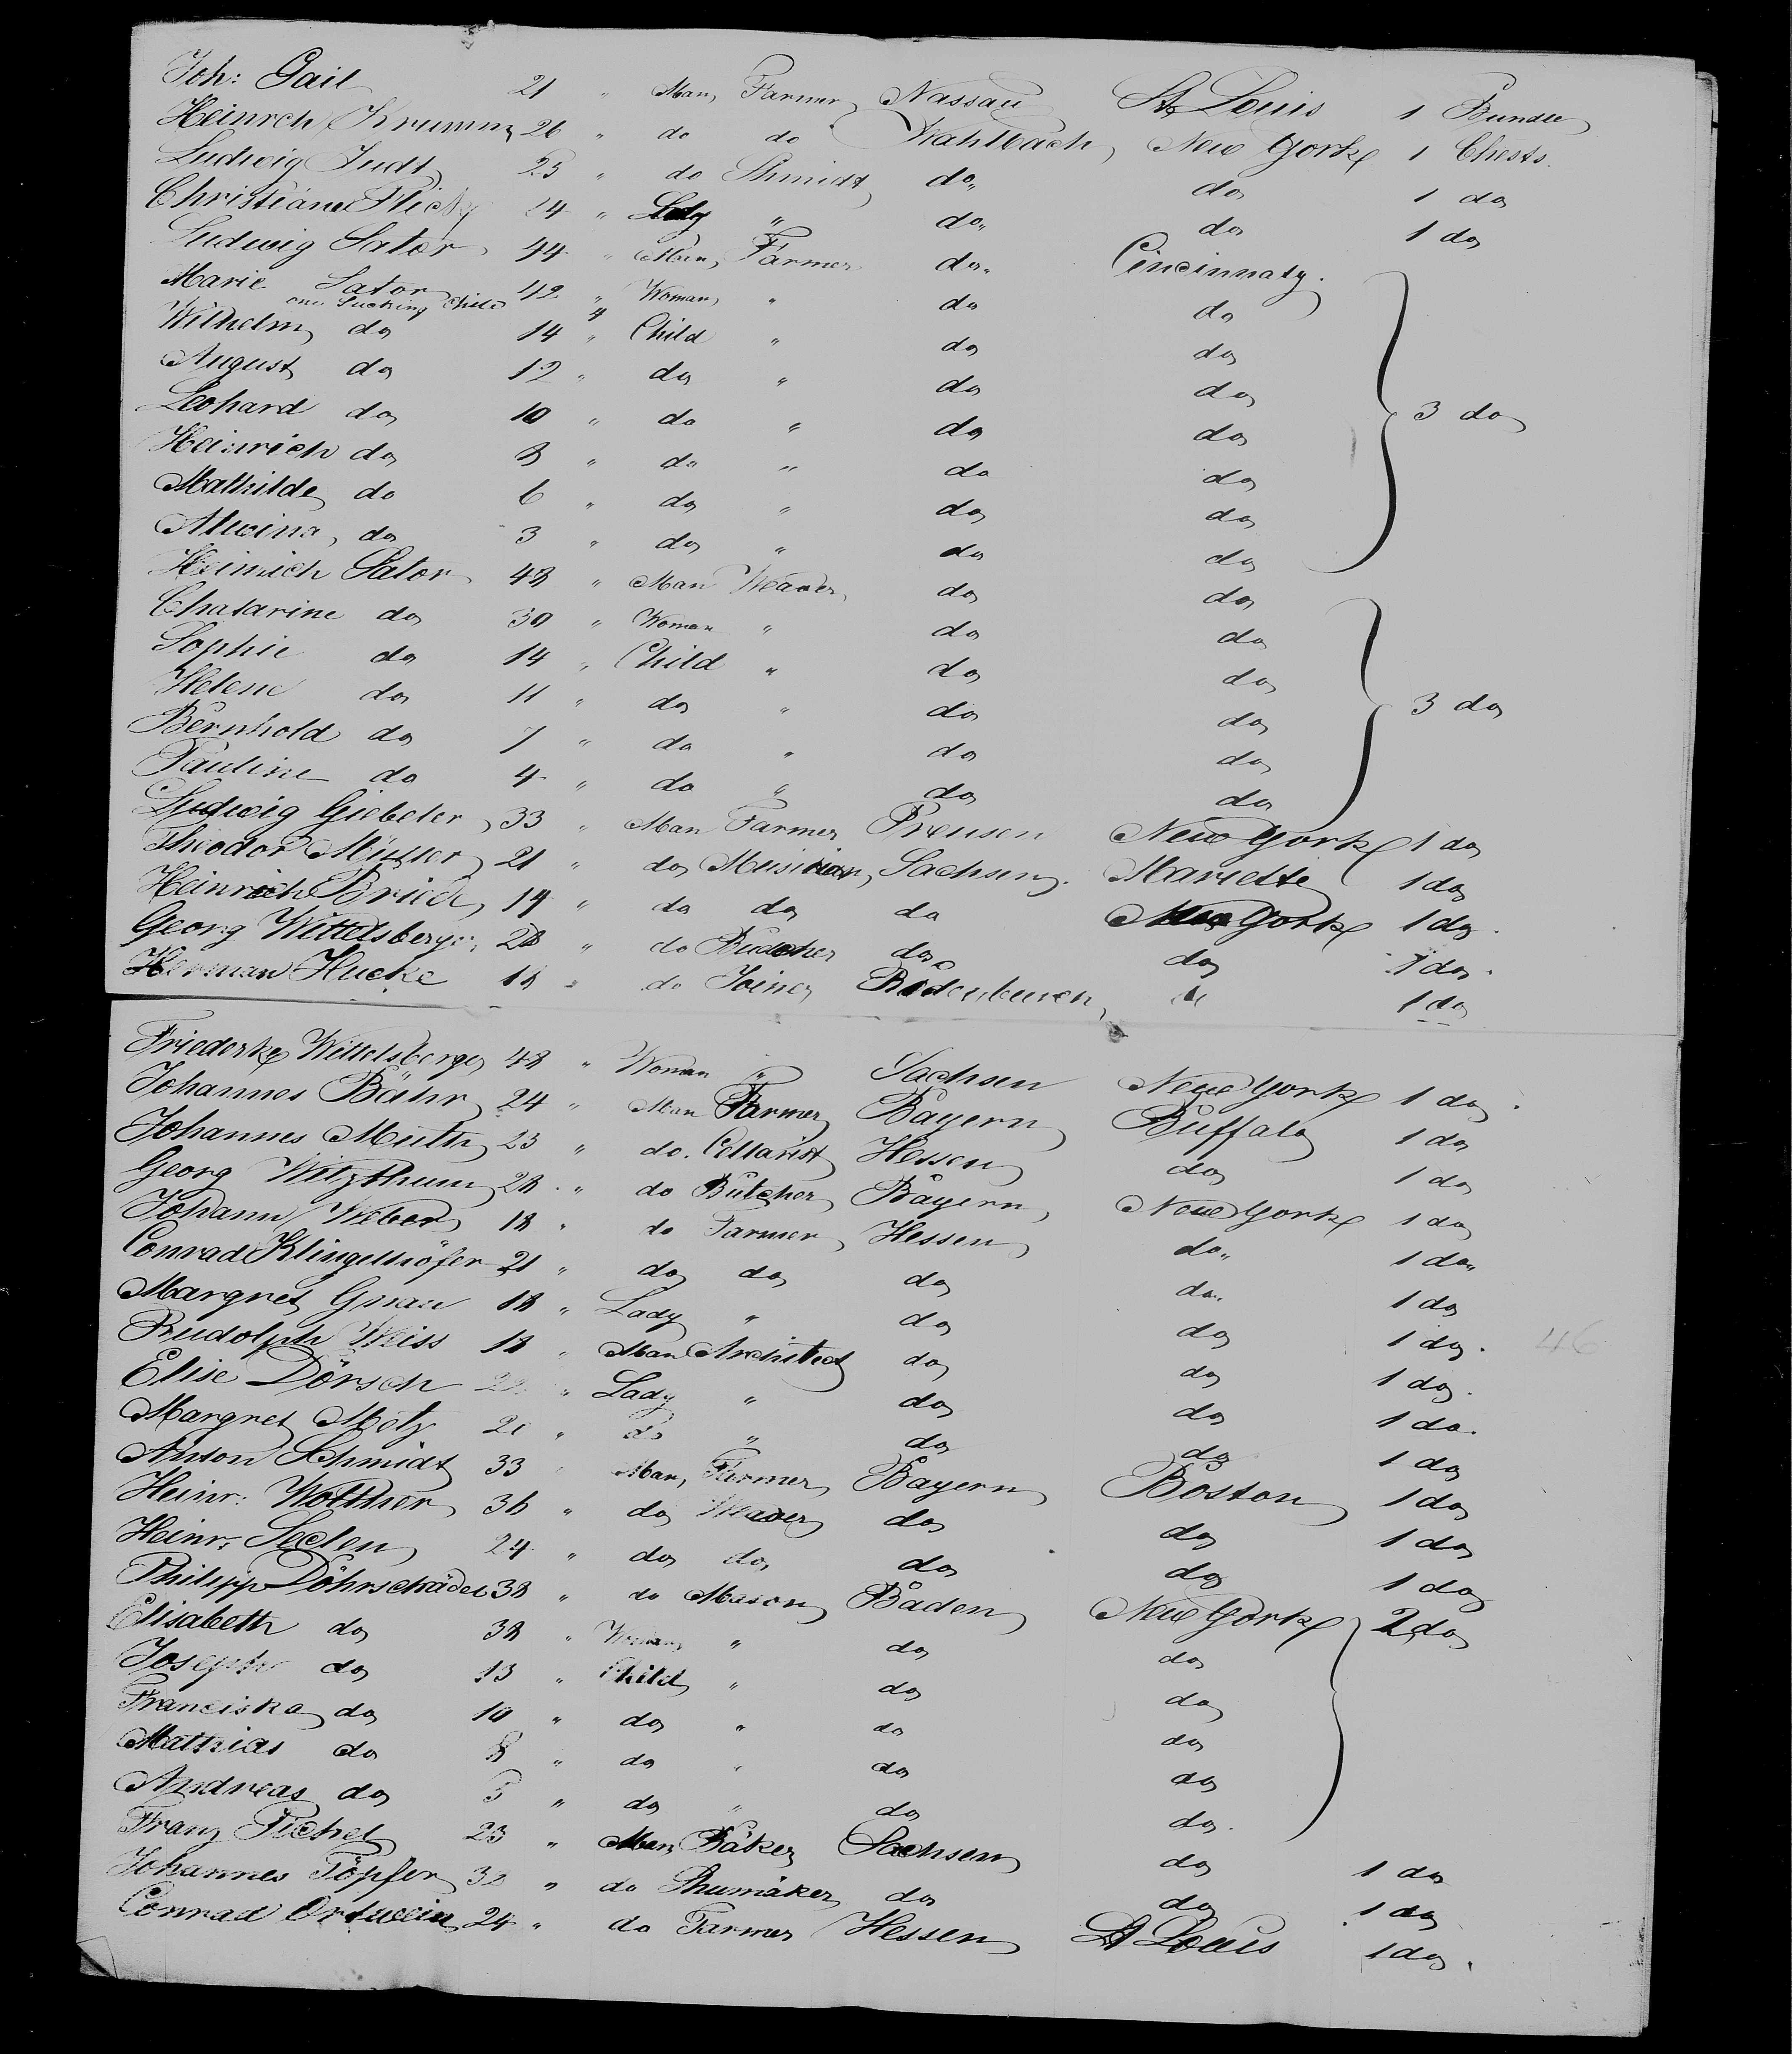 Joh: Gail 21 " Man Farmer Nassau St Louis 1 Bundle
Heinrch Krumm 26 " do do Wahlbach, New York 1 Chests.
Ludwig Judt 25 " do Shmidt do" do 1 do
Christiane Flick 24 " Lady " do" do 1 do
Ludwig Sator 44 " Man, Farmer do" Cincinnaty.
Marie Sator 42 " Woman " do do
one Sucking Child "
Wilhelm do 14 " Child " do do
August do 12 " do " do do
Leohard do 10 " do " do do 3 do
Heinrich do 8 " do " do do
Mathilde do 6 " do " do do
Alwina, do 3 " do " do do
Heinrich Sator 48 " Man Weaver do do
Chatarine do 30 " Woman " do do
Sophie do 14 " Child " do do
Helene do 11 " do " do do 3 do
Bernhold do 7 " do " do do
Pauline do 4 " do " do do
Ludwig Giebeler 33 " Man Farmer Preusen New York 1 do
Theodor Müller 21 " do Musician Sachsen. Mariette 1 do
Heinrich Bried 19 " do do do New York 1 do.
Georg Wittelsberger 28 " do Butcher do do 1 do.
Herman Hucke 18 " do Joiner 1 do
Friederke Wittelsberger 48 " Woman " Sachsen New York 1 do.
Johannes Bähr 24 " Man Farmer Bayern Buffalo 1 do
Johannes Muth 23 " do. Cellarist Hessen do 1 do
Georg Witzthum 28 " do Butcher Bayern, New York 1 do
Johann Weber 18 " do Farmer Hessen do" 1 do"
Conrad Klingelhöfer 21 " do do do do" 1 do
Margret Gnau 18 " Lady " do do 1 do. 46
Rudolph Weiss 18 " Man Architect do do 1 do.
Elise Dörsch " Lady " do do 1 do.
Margret Motz " do " do do 1 do
Anton Schmidt 33 " Man, Farmer Bayern Boston 1 do
Heinr: Wolthier 36 " do Weaver do do 1 do
Heinr: Seelen 24 " do do do do 1 do
Philipp Döhrschädel 38 " do Mason Baden New York 2 do
Elisabeth do 38 " Woman " do do
Joseph do 13 " Child " do do
Franciska do 10 " do " do do
Mathias do 8 " do " do do
Andreas do 5 " do " do do.
Franz Pichel 23 " Man Bäker Sachsen do 1 do
Johannes Töpfer 32 " do Shumäker do do 1 do
Conrad Ortwein 24 " do Farmer Hessen St Louis 1 do.